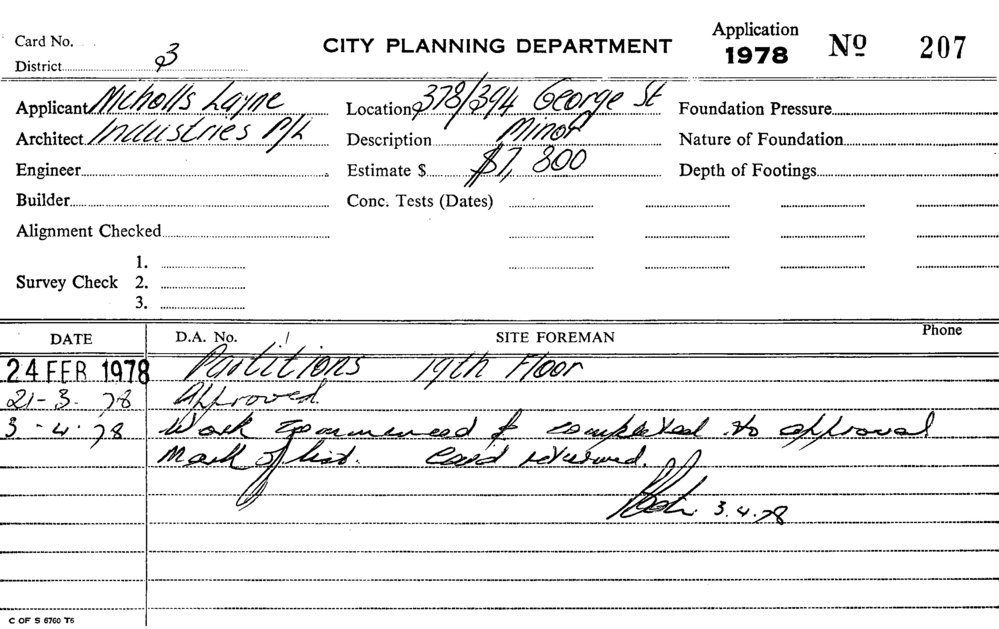 Card No.
District 3
CITY PLANNING DEPARTMENT
Application
1978
No 207
Applicant Nicholls Layne
Architect Industries P/L
Engineer
Builder
Alignment Checked
Survey Check
1.
2.
3.
Location 378/394 George St
Description Minor
Estimate $ $7,800
Conc. Tests (Dates)
Foundation Pressure
Nature of Foundation
Depth of Footings
DATE D.A. No. / SITE FOREMAN Phone
24 FEB 1978 Partitions 19th Floor
21-3.78 Approved.
3-4.78 Work commenced & completed to approval
Mark off list. Card returned.
3.4.78
C OF S 6760 T6